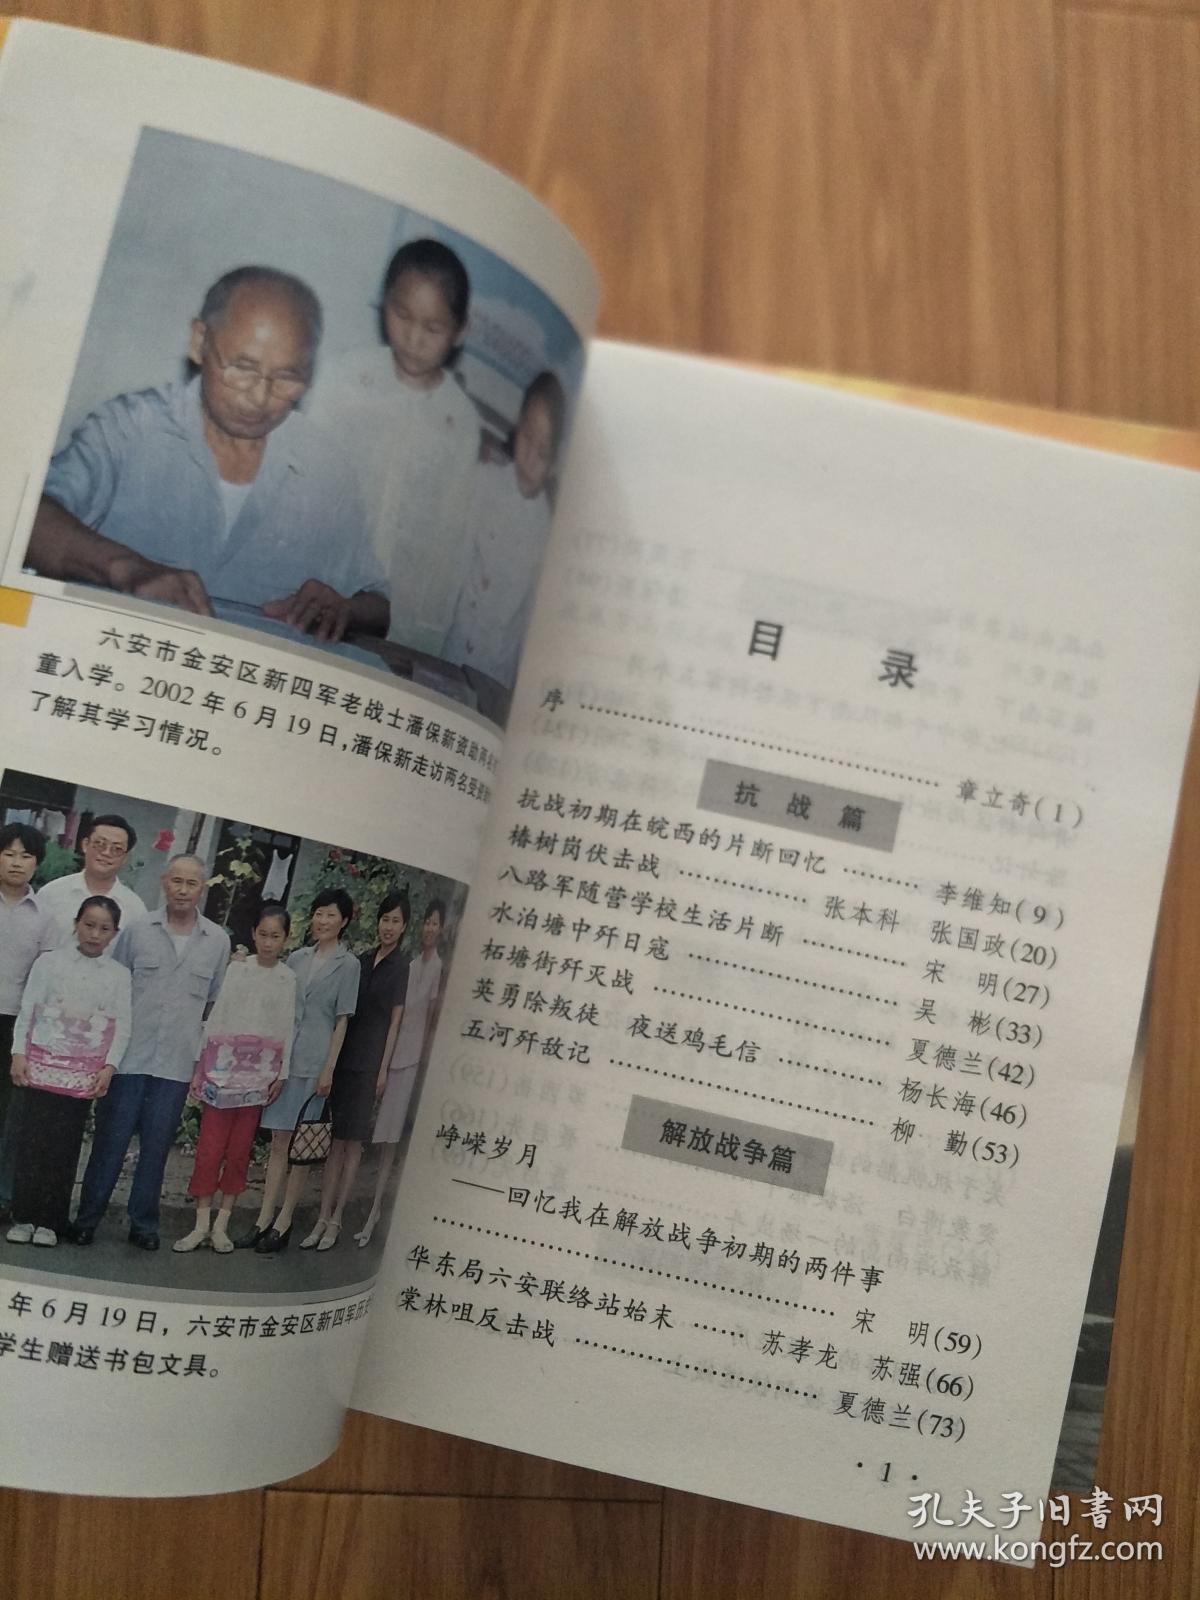 六安市金安区新四军老战士潘保新资助两名
童入学。2002年6月19日，潘保新走访两名受资
了解其学习情况。
年6月19日，六安市金安区新四军历史
学生赠送书包文具。
目 录
序 …… 章立奇(1)
抗战篇
抗战初期在皖西的片断回忆 …… 李维知(9)
椿树岗伏击战 …… 张本科 张国政(20)
八路军随营学校生活片断 …… 宋 明(27)
水泊塘中歼日寇 …… 吴 彬(33)
柘塘街歼灭战 …… 夏德兰(42)
英勇除叛徒 夜送鸡毛信 …… 杨长海(46)
五河歼敌记 …… 柳 勤(53)
解放战争篇
峥嵘岁月
——回忆我在解放战争初期的两件事
…… 宋 明(59)
华东局六安联络站始末 …… 苏孝龙 苏强(66)
棠林咀反击战 …… 夏德兰(73)
·1·
孔夫子旧书网
www.kongfz.com